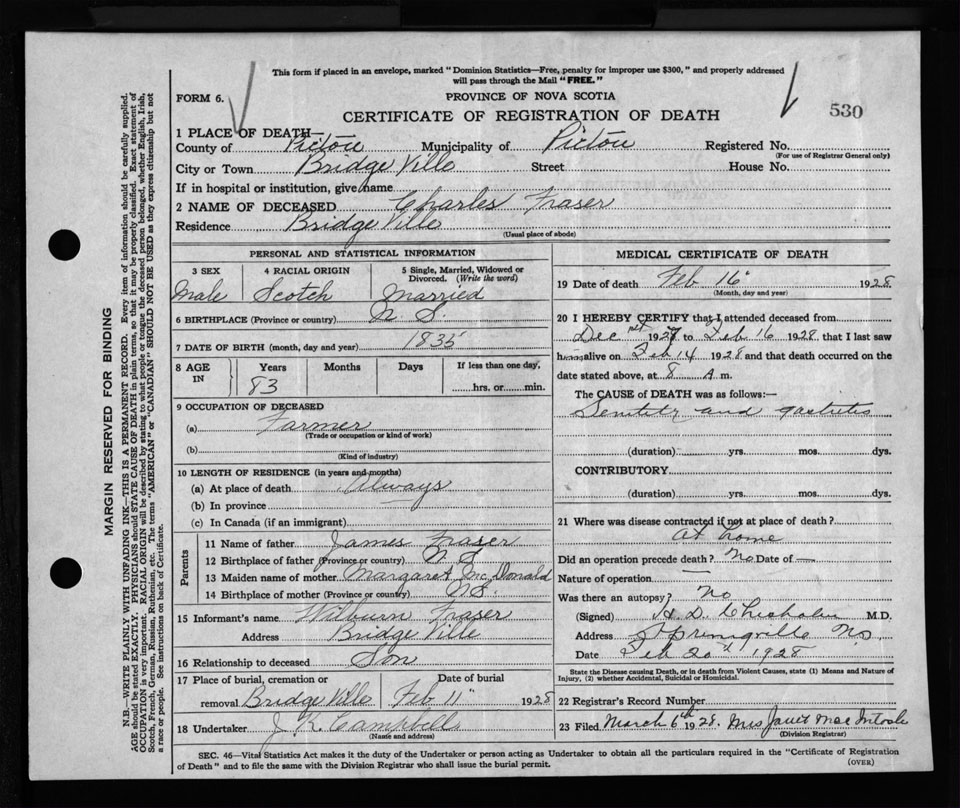 This form if placed in an envelope, marked "Dominion Statistics—Free, penalty for improper use $300," and properly addressed
will pass through the Mail "FREE."
FORM 6.
PROVINCE OF NOVA SCOTIA
530
CERTIFICATE OF REGISTRATION OF DEATH
1 PLACE OF DEATH—
County of Pictou Municipality of Pictou Registered No.
(For use of Registrar General only)
City or Town Bridge Ville Street House No.
If in hospital or institution, give name
2 NAME OF DECEASED Charles Fraser
Residence Bridge Ville
(Usual place of abode)
PERSONAL AND STATISTICAL INFORMATION
3 SEX 4 RACIAL ORIGIN 5 Single, Married, Widowed or
Divorced. (Write the word)
Male Scotch Married
6 BIRTHPLACE (Province or country) N S.
7 DATE OF BIRTH (month, day and year) 1835
8 AGE Years Months Days If less than one day,
IN 83 hrs. or min.
9 OCCUPATION OF DECEASED
(a) Farmer
(Trade or occupation or kind of work)
(b)
(Kind of industry)
10 LENGTH OF RESIDENCE (in years and months)
(a) At place of death Always
(b) In province
(c) In Canada (if an immigrant)
Parents
11 Name of father James Fraser
12 Birthplace of father (Province or country) N S.
13 Maiden name of mother Margaret McDonald
14 Birthplace of mother (Province or country) N.S.
15 Informant's name Wilburn Fraser
Address Bridge Ville
16 Relationship to deceased Son
17 Place of burial, cremation or Date of burial
removal Bridge Ville Feb 11" 1928
18 Undertaker J. K. Campbell
(Name and address)
MEDICAL CERTIFICATE OF DEATH
19 Date of death Feb 16 1928
(Month, day and year)
20 I HEREBY CERTIFY that I attended deceased from
Dec 1927 to Feb 16 1928 that I last saw
alive on Feb 14 1928 and that death occurred on the
date stated above, at 8 A m.
The CAUSE of DEATH was as follows:—
Senility and gastritis
(duration) yrs. mos. dys.
CONTRIBUTORY
(duration) yrs. mos. dys.
21 Where was disease contracted if not at place of death?
At home
Did an operation precede death? No Date of —
Nature of operation —
Was there an autopsy? No
(Signed) H. D. Chisholm M.D.
Address Springville NS
Date Feb 20th 1928
State the Disease causing Death, or in death from Violent Causes, state (1) Means and Nature of
Injury, (2) whether Accidental, Suicidal or Homicidal.
22 Registrar's Record Number
23 Filed March 6th 1928. Mrs Janet MacIntosh
(Division Registrar)
SEC. 46—Vital Statistics Act makes it the duty of the Undertaker or person acting as Undertaker to obtain all the particulars required in the "Certificate of Registration
of Death" and to file the same with the Division Registrar who shall issue the burial permit. (OVER)
MARGIN RESERVED FOR BINDING
N.B.—WRITE PLAINLY WITH UNFADING INK—THIS IS A PERMANENT RECORD. Every item of information should be carefully supplied.
AGE should be stated EXACTLY. PHYSICIANS should STATE CAUSE OF DEATH in plain terms, so that it may be properly classified. Exact statement of
OCCUPATION is very important. RACIAL ORIGIN will be described by stating to what people or tongue the deceased person belonged, whether English, Irish,
Scotch, French, German, Russian, Ruthenian, etc. The terms "AMERICAN" or "CANADIAN" SHOULD NOT BE USED as they express citizenship but not
a race or people. See instructions on back of Certificate.